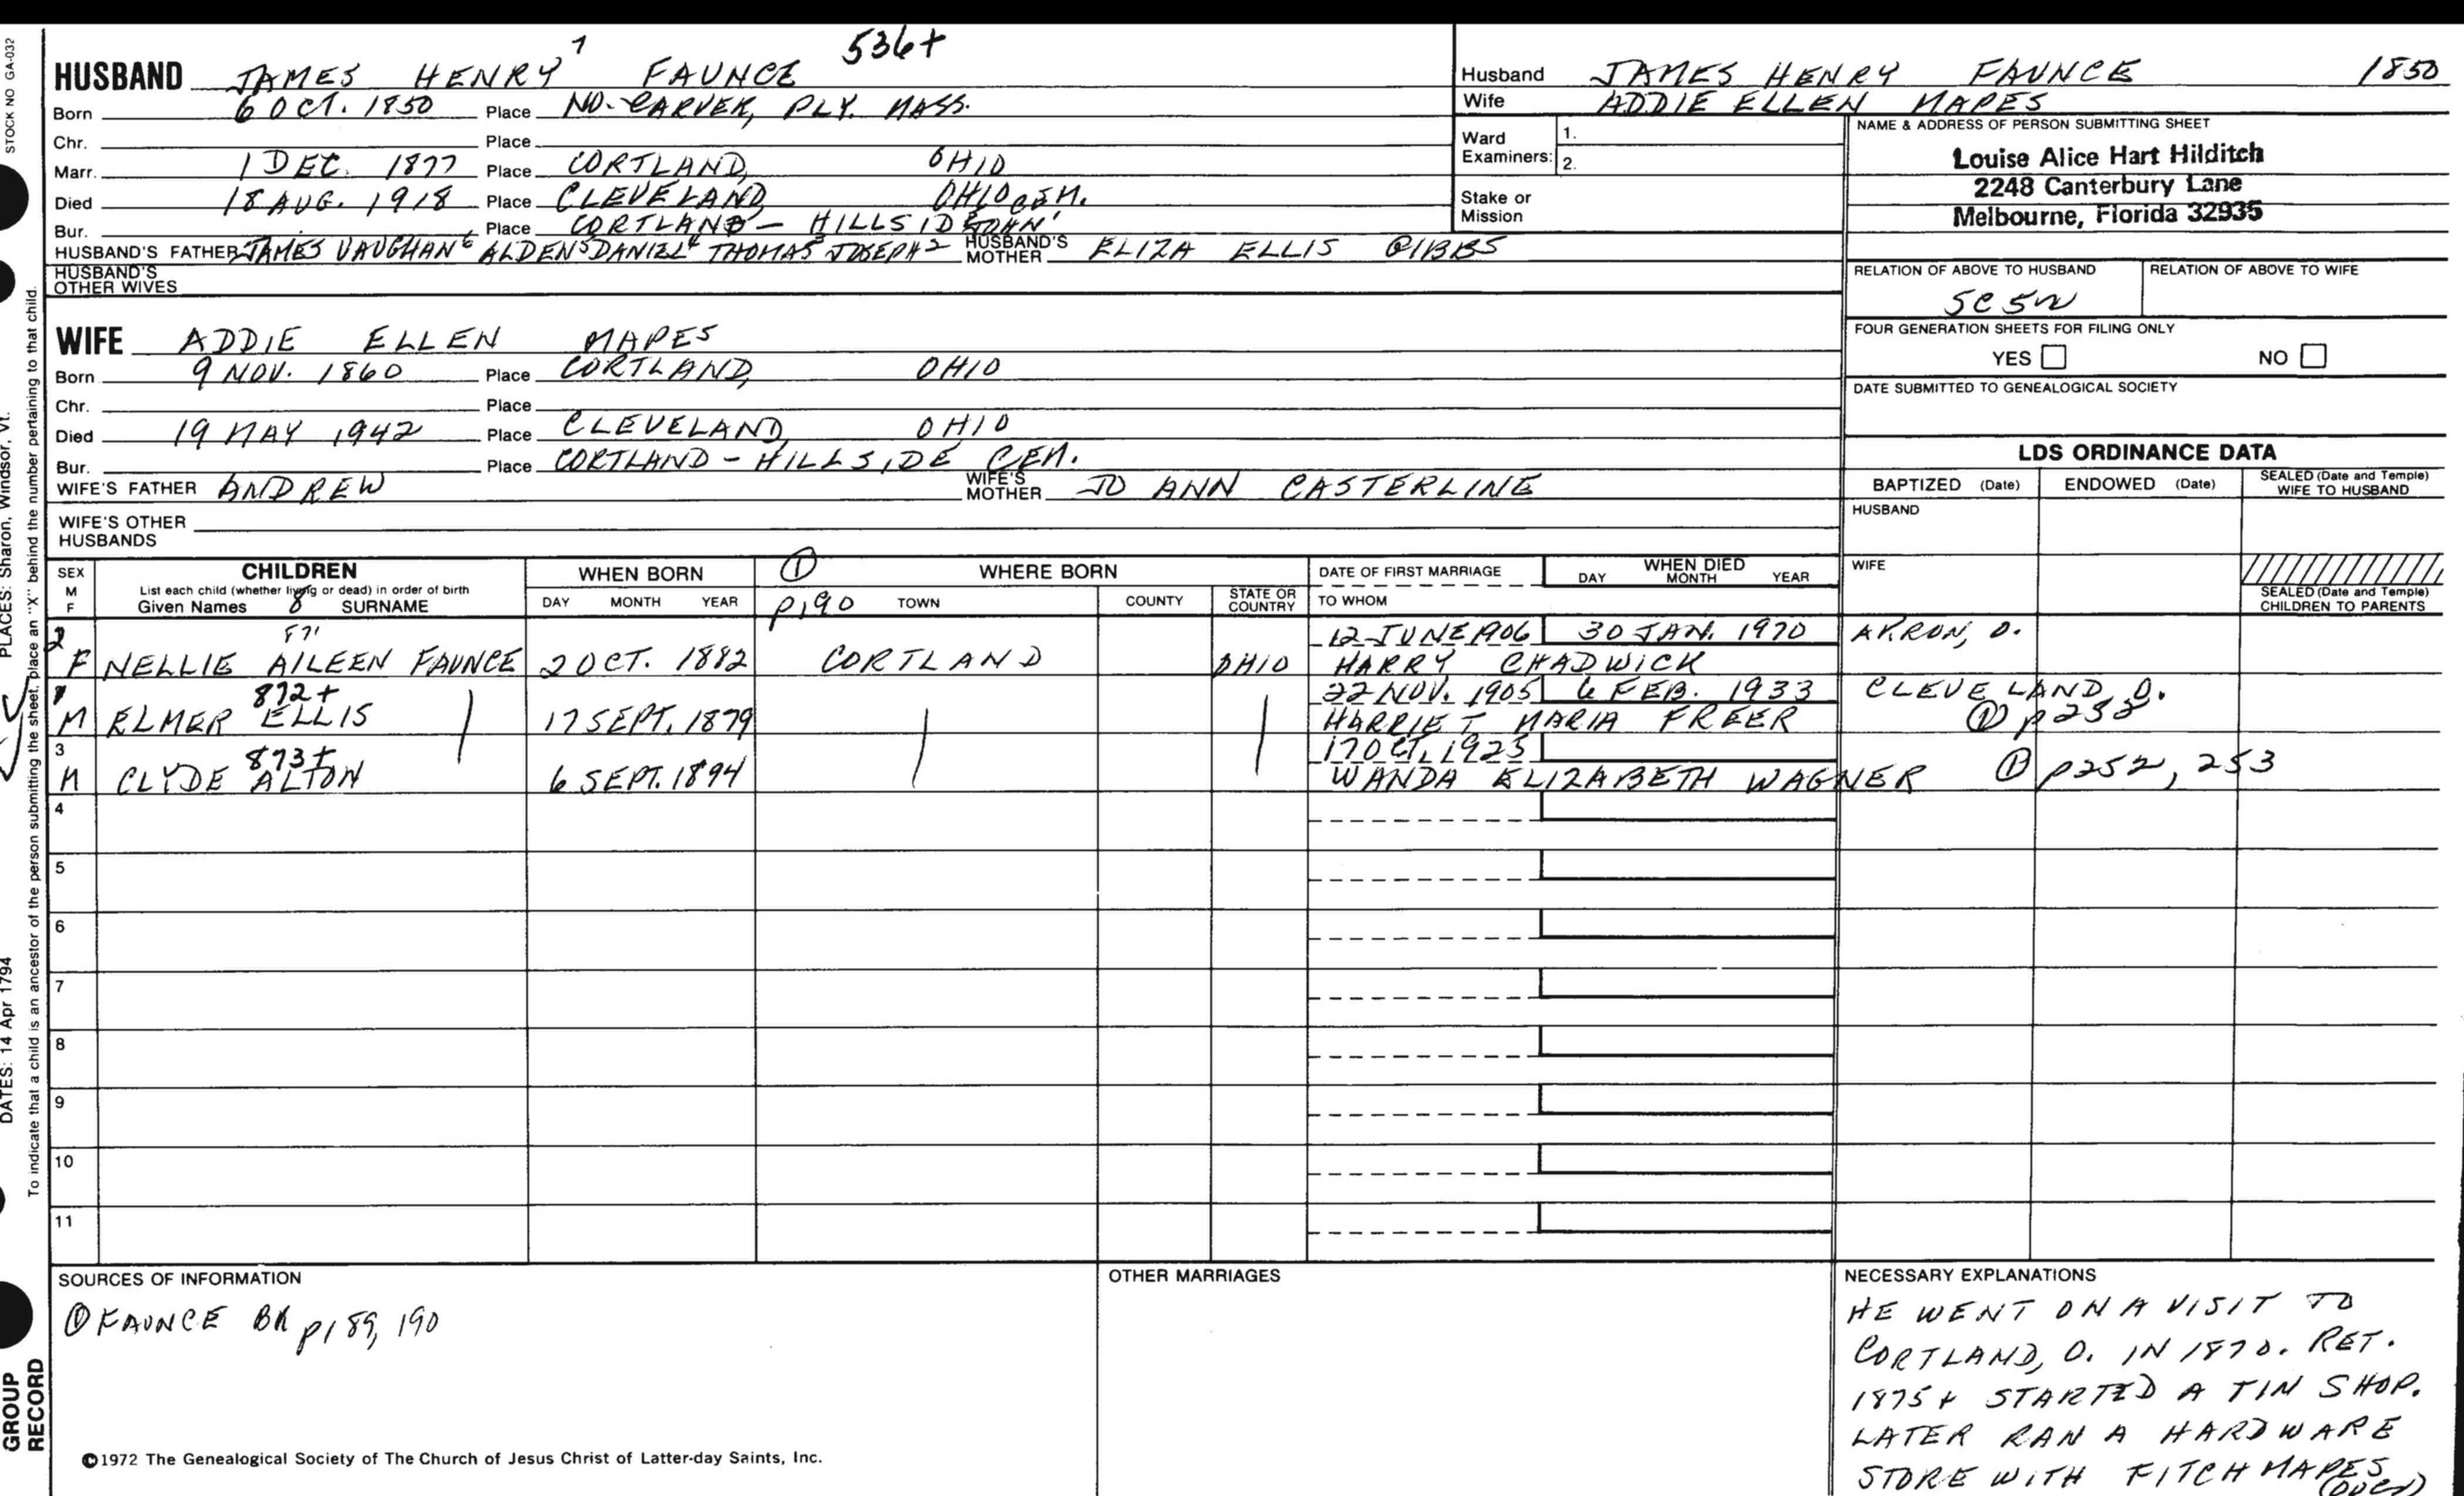 STOCK NO GA-032
HUSBAND JAMES HENRY 7 FAUNCE 536+
Born 6 OCT. 1850 Place NO. CARVER, PLY. MASS.
Chr. Place
Marr. 1 DEC. 1877 Place CORTLAND, OHIO
Died 18 AUG. 1918 Place CLEVELAND OHIO
Bur. Place CORTLAND - HILLSIDE CEM.
HUSBAND'S FATHER JAMES VAUGHAN 6 ALDEN 5 DANIEL 4 THOMAS 3 JOSEPH 2 JOHN 1 HUSBAND'S MOTHER ELIZA ELLIS GIBBS
HUSBAND'S OTHER WIVES
WIFE ADDIE ELLEN MAPES
Born 9 NOV. 1860 Place CORTLAND, OHIO
Chr. Place
Died 19 MAY 1942 Place CLEVELAND OHIO
Bur. Place CORTLAND - HILLSIDE CEM.
WIFE'S FATHER ANDREW WIFE'S MOTHER JO ANN CASTERLINE
WIFE'S OTHER HUSBANDS
Husband JAMES HENRY FAUNCE 1850
Wife ADDIE ELLEN MAPES
Ward Examiners: 1.
2.
Stake or Mission
NAME & ADDRESS OF PERSON SUBMITTING SHEET
Louise Alice Hart Hilditch
2248 Canterbury Lane
Melbourne, Florida 32935
RELATION OF ABOVE TO HUSBAND RELATION OF ABOVE TO WIFE
5C 5W
FOUR GENERATION SHEETS FOR FILING ONLY
YES NO
DATE SUBMITTED TO GENEALOGICAL SOCIETY
LDS ORDINANCE DATA
BAPTIZED (Date) ENDOWED (Date) SEALED (Date and Temple) WIFE TO HUSBAND
HUSBAND
WIFE
SEALED (Date and Temple) CHILDREN TO PARENTS
SEX M F CHILDREN WHEN BORN ① WHERE BORN DATE OF FIRST MARRIAGE WHEN DIED
List each child (whether living or dead) in order of birth
Given Names 8 SURNAME DAY MONTH YEAR p190 TOWN COUNTY STATE OR COUNTRY TO WHOM DAY MONTH YEAR
2 871 12 JUNE 1906 30 JAN. 1970 AKRON, O.
F NELLIE AILEEN FAUNCE 2 OCT. 1882 CORTLAND OHIO HARRY CHADWICK
1 872+ 22 NOV. 1905 6 FEB. 1933 CLEVELAND, O.
M ELMER ELLIS 17 SEPT. 1879 HARRIET MARIA FREER ①
3 873+ 17 OCT. 1925
M CLYDE ALTON 6 SEPT. 1894 WANDA ELIZABETH WAGNER ① p252, 253
4
5
6
7
8
9
10
11
SOURCES OF INFORMATION
① FAUNCE BK p189, 190
©1972 The Genealogical Society of The Church of Jesus Christ of Latter-day Saints, Inc.
OTHER MARRIAGES
NECESSARY EXPLANATIONS
HE WENT ON A VISIT TO
CORTLAND, O. IN 1870. RET.
1875 + STARTED A TIN SHOP.
LATER RAN A HARDWARE
STORE WITH FITCH MAPES
(over)
PLACES: Sharon, Windsor, Vt.
DATES: 14 Apr 1794
To indicate that a child is an ancestor of the person submitting the sheet, place an "X" behind the number pertaining to that child.
GROUP
RECORD